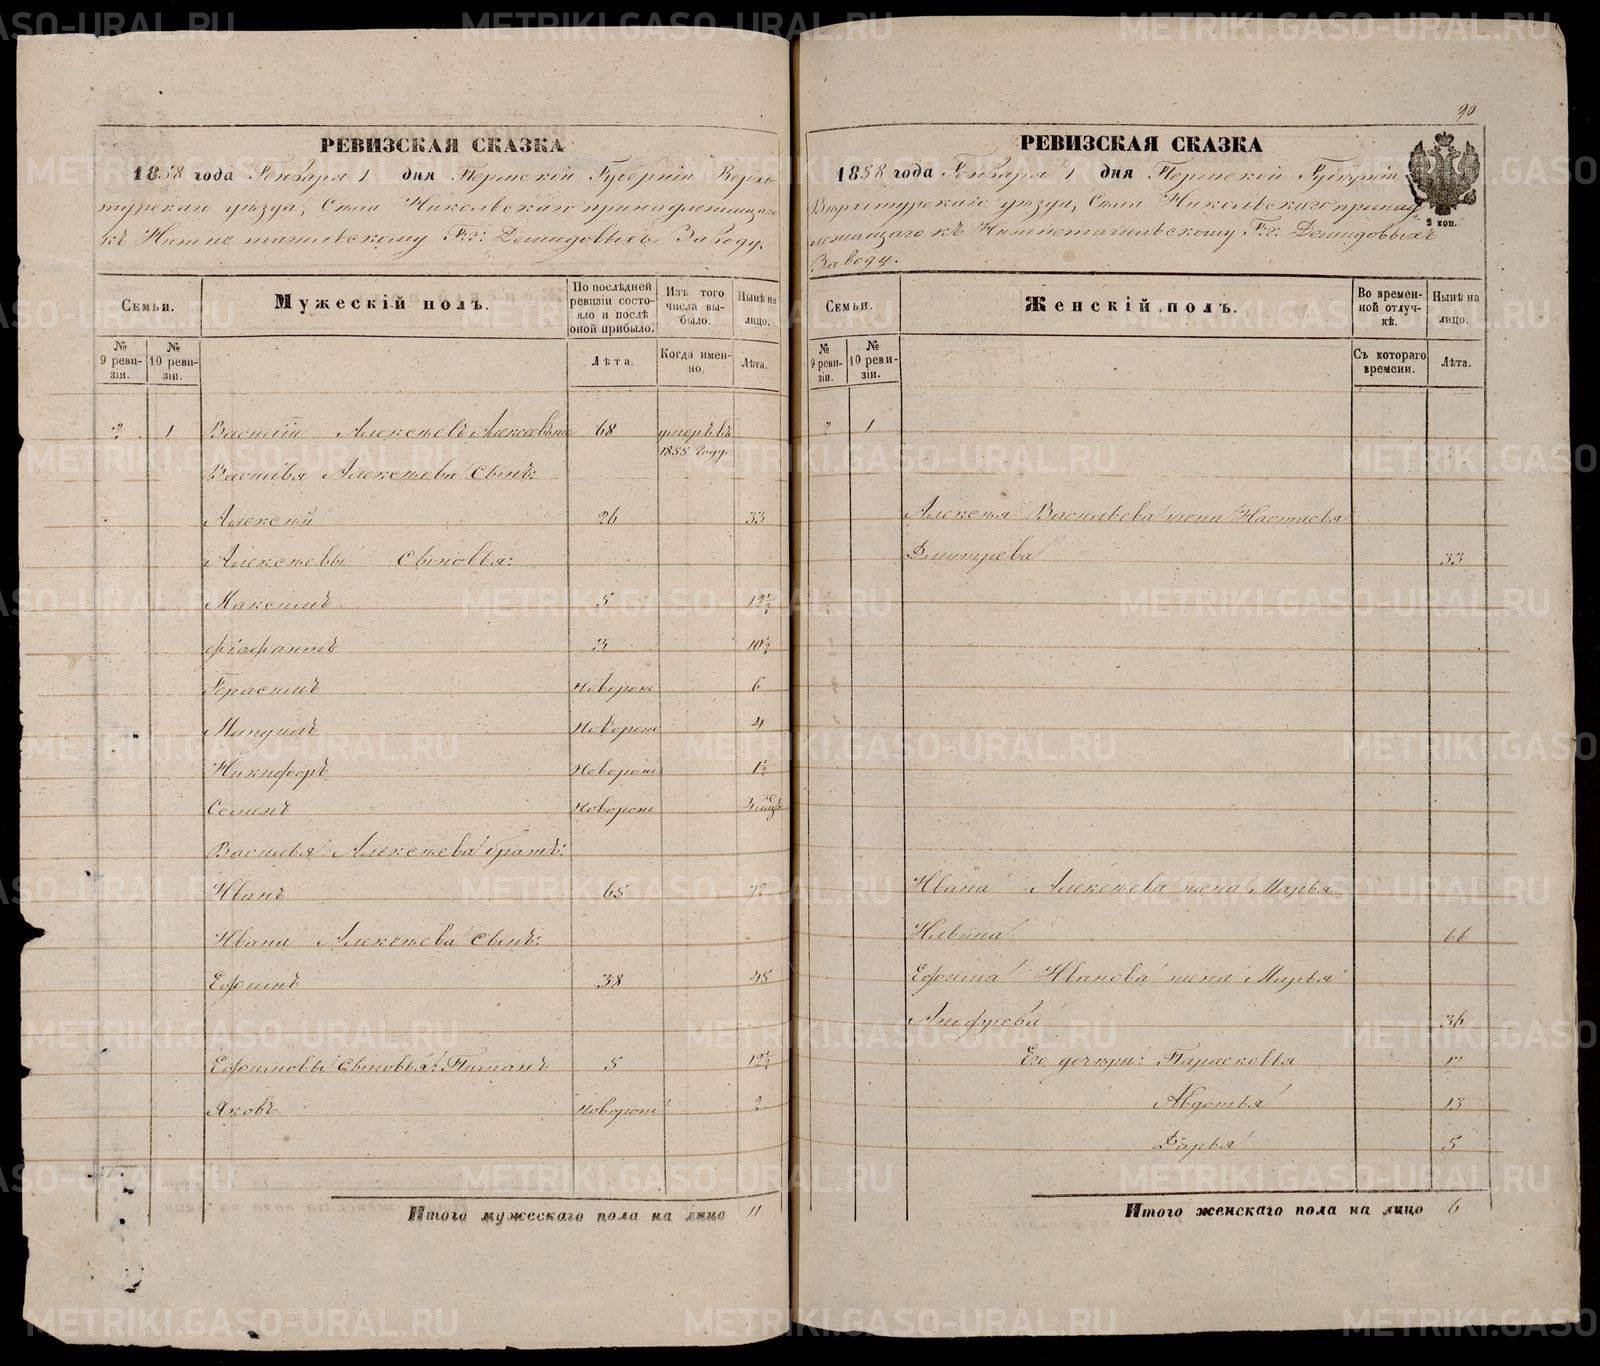 РЕВИЗСКАЯ СКАЗКА
1858 года Генваря 1 дня Пермской Губерніи Верхо-
турскаго уѣзда, Села Никольскаго принадлежащаго
къ Нижнетагильскому Г.г: Демидовыхъ Заводу.
Семьи.
Мужескій полъ.
По послѣдней ревизіи состояло и послѣ оной прибыло.
Изъ того числа выбыло.
Нынѣ на лицо.
№ 9 ревизіи.
№ 10 ревизіи.
Лѣта.
Когда именно.
Лѣта.
2 1 Василій Алексѣевъ 68 умеръ въ
1855 году.
Василья Алексѣева сынъ:
Алексѣй 26 33
Алексѣевы сыновья:
Максимъ 5 12½
Феофантъ 3 10½
Герасимъ Новорож 6
Мануилъ Новорож 4
Никифоръ Новорож 1½
Семенъ Новорож
Василья Алексѣева братъ:
Иванъ 65 72
Ивана Алексѣева сынъ:
Ефимъ 38 45
Ефимовы сыновья: 5 12½
Яковъ Новорож 2
Итого мужескаго пола на лицо 11
90
РЕВИЗСКАЯ СКАЗКА
1858 года Генваря 1 дня Пермской Губерніи
Верхотурскаго уѣзда, Села Никольскаго принад-
лежащаго къ Нижнетагильскому Г.г: Демидовыхъ
Заводу.
2 коп.
Семьи.
Женскій полъ.
Во временной отлучкѣ.
Нынѣ на лицо.
№ 9 ревизіи.
№ 10 ревизіи.
Съ котораго времени.
Лѣта.
2 1
Алексѣя Васильева жена Настасья
Дмитрева 33
Ивана Алексѣева жена Марья
Ильина 66
Ефима Иванова жена Марья
36
Его дочери: Парасковья 17
Авдотья 13
Дарья 5
Итого женскаго пола на лицо 6
METRIKI.GASO-URAL.RU